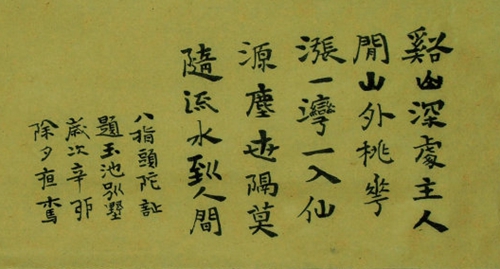 谿山深處主人
閒山外桃華
漲一灣一入仙
源塵世隔莫
隨流水到人間
八指頭陀
題玉池別墅
歲次辛卯
除夕